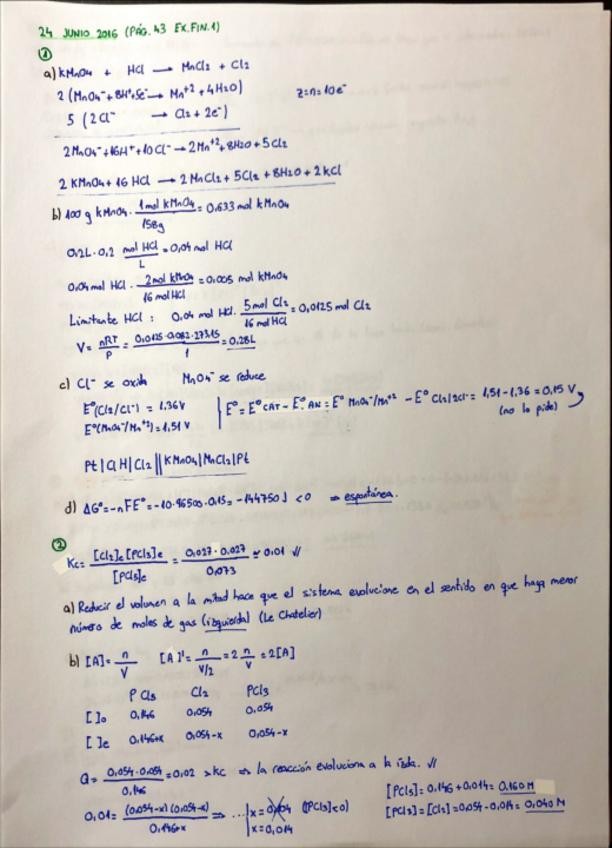 24 JUNIO 2016 (PÁG. 43 EX.FIN.1)
①
a) KMnO4 + HCl → MnCl2 + Cl2
2 (MnO4⁻ + 8H⁺ + 5e⁻ → Mn⁺² + 4H2O) z=n=10e⁻
5 (2Cl⁻ → Cl2 + 2e⁻)
2MnO4⁻ + 16H⁺ + 10Cl⁻ → 2Mn⁺² + 8H2O + 5Cl2
2 KMnO4 + 16 HCl → 2 MnCl2 + 5Cl2 + 8H2O + 2KCl
b) 100 g KMnO4 · 1mol KMnO4 / 158g = 0,633 mol KMnO4
0,2L · 0,2 mol HCl / L = 0,04 mol HCl
0,04 mol HCl · 2mol KMnO4 / 16 mol HCl = 0,005 mol KMnO4
Limitante HCl : 0,04 mol HCl · 5 mol Cl2 / 16 mol HCl = 0,0125 mol Cl2
V = nRT / P = 0,0125·0,082·273,15 / 1 = 0,28L
c) Cl⁻ se oxida MnO4⁻ se reduce
E°(Cl2/Cl⁻) = 1,36V
E°(MnO4⁻/Mn⁺²) = 1,51 V
E° = E° CAT − E° AN = E° MnO4⁻/Mn⁺² − E° Cl2/2Cl⁻ = 1,51 − 1,36 = 0,15 V
(no lo pide)
Pt | ClH | Cl2 || KMnO4 | MnCl2 | Pt
d) ΔG° = −nFE° = −10·96500·0,15 = −144750J < 0 ⇒ espontánea.
②
Kc = [Cl2]e [PCl3]e / [PCl5]e = 0,027 · 0,027 / 0,073 ≃ 0,01 //
a) Reducir el volumen a la mitad hace que el sistema evolucione en el sentido en que haya menor
número de moles de gas (izquierda) (Le Chatelier)
b) [A] = n / V [A]' = n / V/2 = 2 n / V = 2[A]
PCl5 Cl2 PCl3
[ ]o 0,146 0,054 0,054
[ ]e 0,146+x 0,054−x 0,054−x
Q = 0,054·0,054 / 0,146 = 0,02 > Kc ⇒ la reacción evoluciona a la izda. //
0,01 = (0,054−x)(0,054−x) / 0,146+x ⇒ ... x = 0,104 ([PCl3]<0)
x = 0,014
[PCl5] = 0,146 + 0,014 = 0,160 M
[PCl3] = [Cl2] = 0,054 − 0,014 = 0,040 M